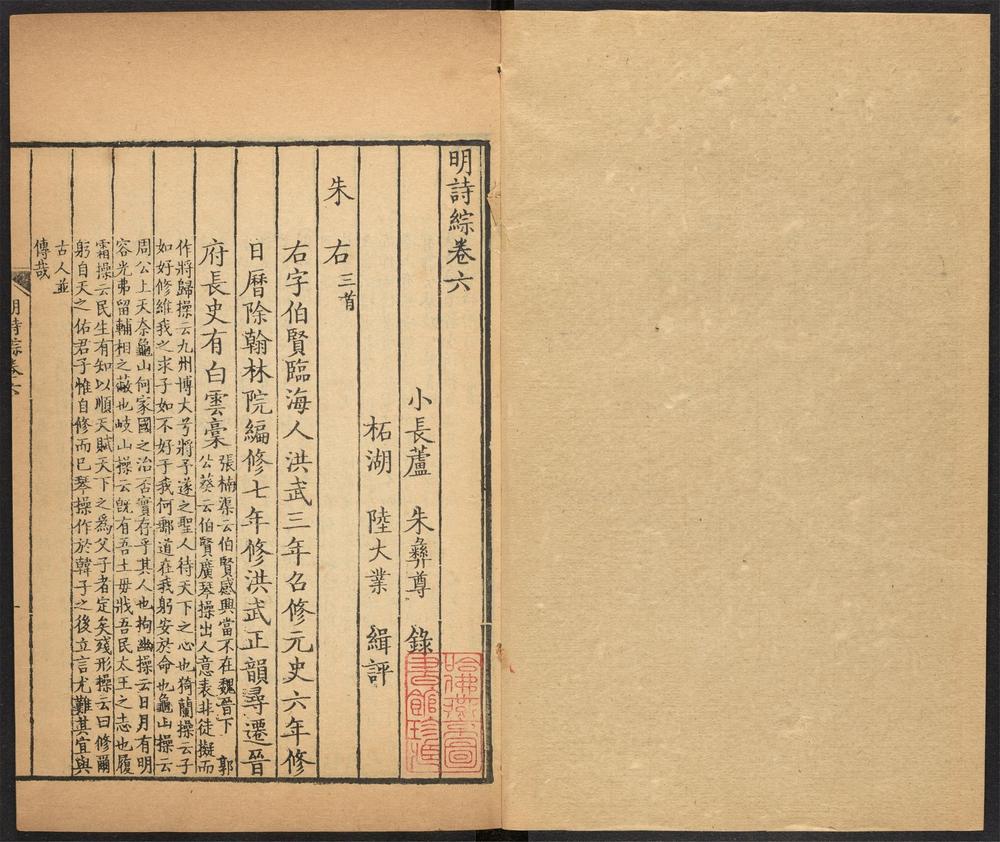 明詩綜卷六
小長蘆 朱彝尊 錄
柘湖 陸大業 緝評
朱 右三首
右字伯賢臨海人洪武三年召修元史六年修
日曆除翰林院編修七年修洪武正韻尋遷晉
府長史有白雲稾
張楠渠云伯賢感興當不在魏晉下 郭
公葵云伯賢廣琴操出人意表非徒擬而
作將歸操云九州博大兮將予遂之聖人待天下之心也猗蘭操云子
如好修維我之求子如不好于我何鄙道在我躬安於命也龜山操云
周公上天奈龜山何家國之治否實存乎其人也拘幽操云日月有明
容光弗留輔相之蔽也岐山操云旣有吾土毋戕吾民太王之志也履
霜操云民生有知以順天賦天下之為父子者定矣殘形操云曰修爾
躬自天之佑君子惟自修而已琴操作於韓子之後立言尤難其宜與
古人並
傳哉
明詩綜卷六
哈佛燕京圖
書館珍藏